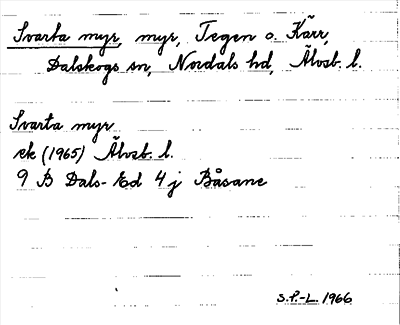 Svarta myr, myr, Tegen o. Kärr,
Dalskogs sn, Nordals hd, Älvsb. l.
Svarta myr
ek (1965) Älvsb. l.
9 B Dals-Ed 4 j Båsane
S.P.-L. 1966